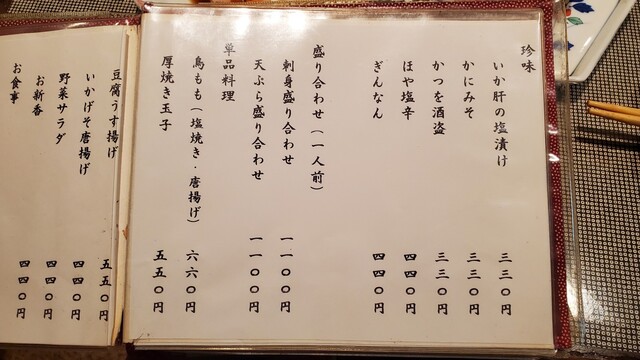 珍味
いか肝の塩漬け 三三〇円
かにみそ 三三〇円
かつを酒盗 三三〇円
ほや塩辛 四四〇円
ぎんなん 四四〇円
盛り合わせ(一人前)
刺身盛り合わせ 一一〇〇円
天ぷら盛り合わせ 一一〇〇円
単品料理
鳥もも(塩焼き・唐揚げ) 六六〇円
厚焼き玉子 五五〇円
豆腐うす揚げ 五五〇円
いかげそ唐揚げ 四四〇円
野菜サラダ 四四〇円
お新香 四四〇円
お食事